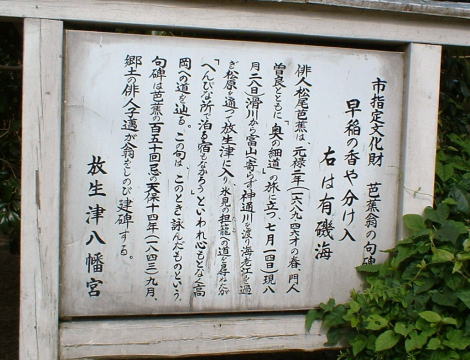 市指定文化財 芭蕉翁の句碑
早稲の香や分け入
右は有磯海
俳人松尾芭蕉は、元禄二年(一六八九)四六才の春、門人
曽良とともに「奥の細道」の旅に立つ。七月一四日(現八
月二八日)滑川から富山へ寄らず神通川を渡り海老江を過
ぎ松原を通って放生津に入り、氷見の担籠への道を尋ねたが
「へんぴな所で泊る宿もなかろう」といわれ心もとなく高
岡への道を辿る。この句は、このとき詠んだものという。
句碑は芭蕉の百五十回忌の天保十四年(一八四三)九月、
郷土の俳人子邁が翁をしのび建碑する。
放生津八幡宮